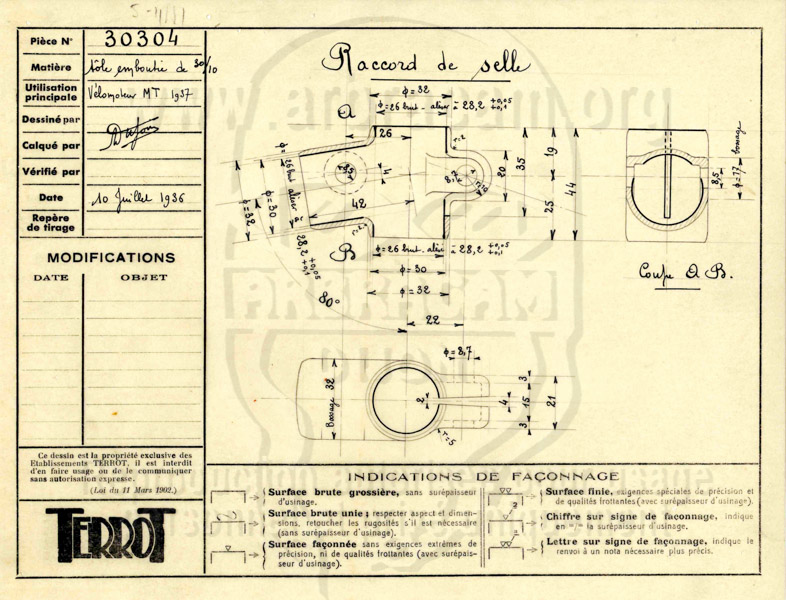 Pièce N° 30304
Matière tôle emboutie de 30/10
Utilisation principale Vélomoteur MT 1937
Dessiné par
Calqué par
Vérifié par
Date 10 Juillet 1936
Repère de tirage
MODIFICATIONS
DATE OBJET
Ce dessin est la propriété exclusive des
Etablissements TERROT, il est interdit
d'en faire usage ou de le communiquer
sans autorisation expresse.
(Loi du 11 Mars 1902.)
TERROT
Raccord de selle
φ=32
φ=26 brut - alésé à 28,2 +0,05 +0,1
A
26
r=2
φ=26 brut alésé à 28,2 +0,05 +0,1
φ=30
φ=32
4
42
r=2
B
20
35
19
25
44
φ=26 brut - alésé à 28,2 +0,05 +0,1
φ=30
φ=32
80°
22
8,5
φ=17 bossage
Coupe A B.
φ=8,7
Bossage 32
2
r=5
3
15
3
4
21
INDICATIONS DE FAÇONNAGE
Surface brute grossière, sans surépaisseur
d'usinage.
Surface brute unie; respecter aspect et dimen-
sions, retoucher les rugosités s'il est nécessaire
(sans surépaisseur d'usinage).
Surface façonnée sans exigences extrêmes de
précision, ni de qualités frottantes (avec surépais-
seur d'usinage).
Surface finie, exigences spéciales de précision et
de qualités frottantes (avec surépaisseur d'usinage).
Chiffre sur signe de façonnage, indique
en la surépaisseur d'usinage.
Lettre sur signe de façonnage, indique le
renvoi à un nota nécessaire plus précis.